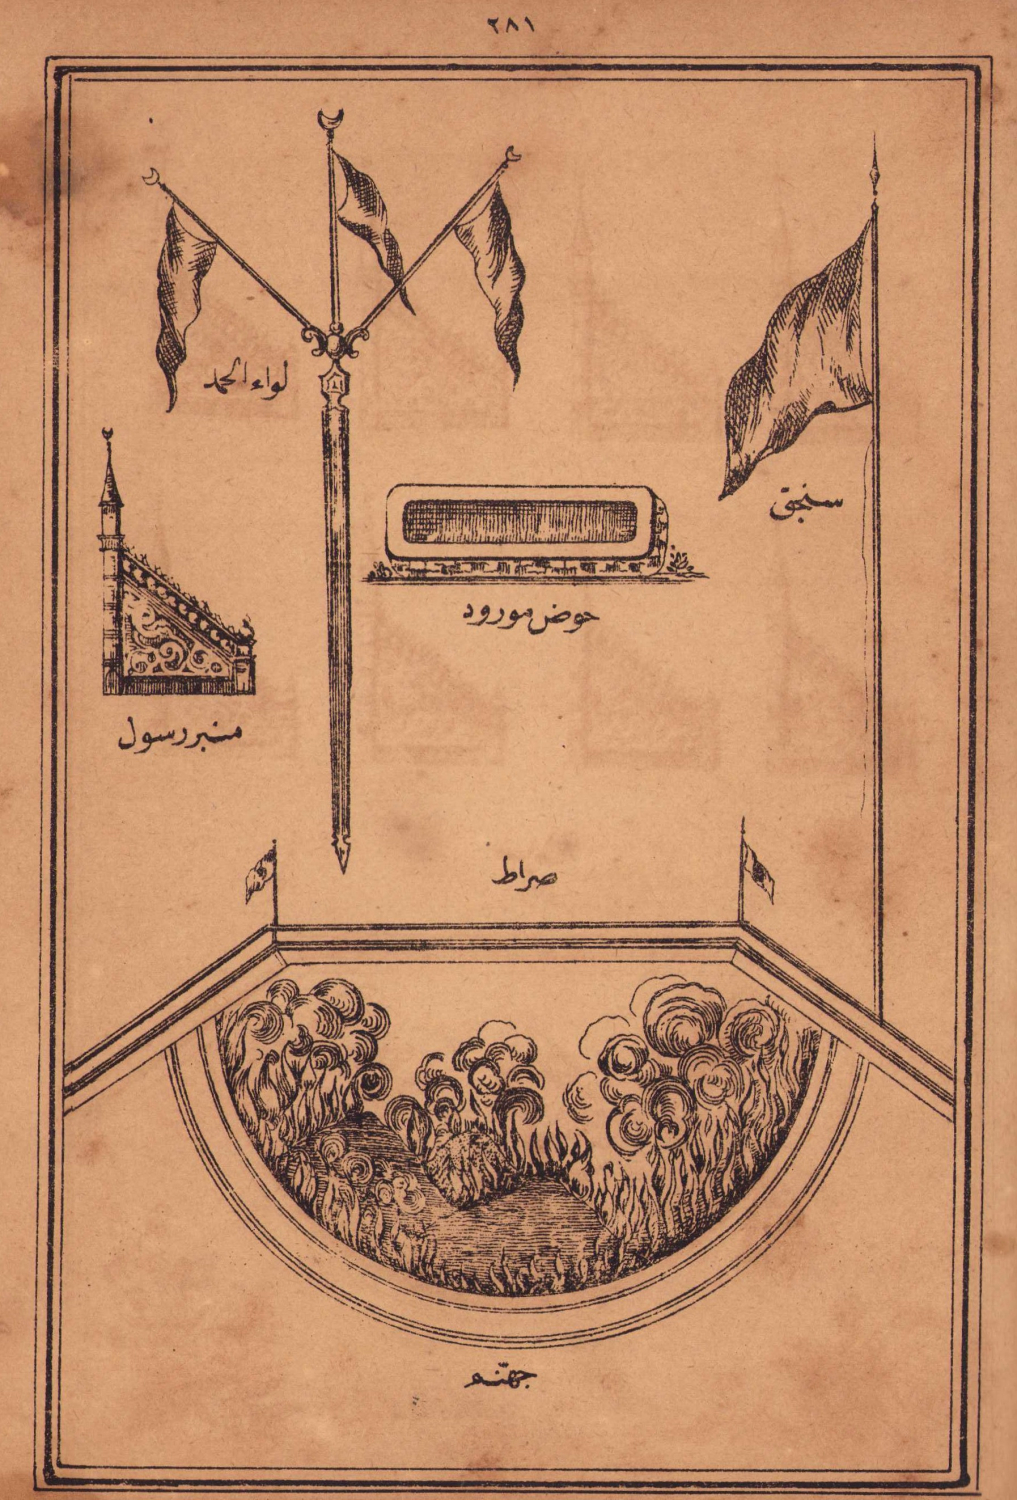 ٢٨١
لواء الحمد
سنجق
حوض مورود
منبر رسول
صراط
جهنم